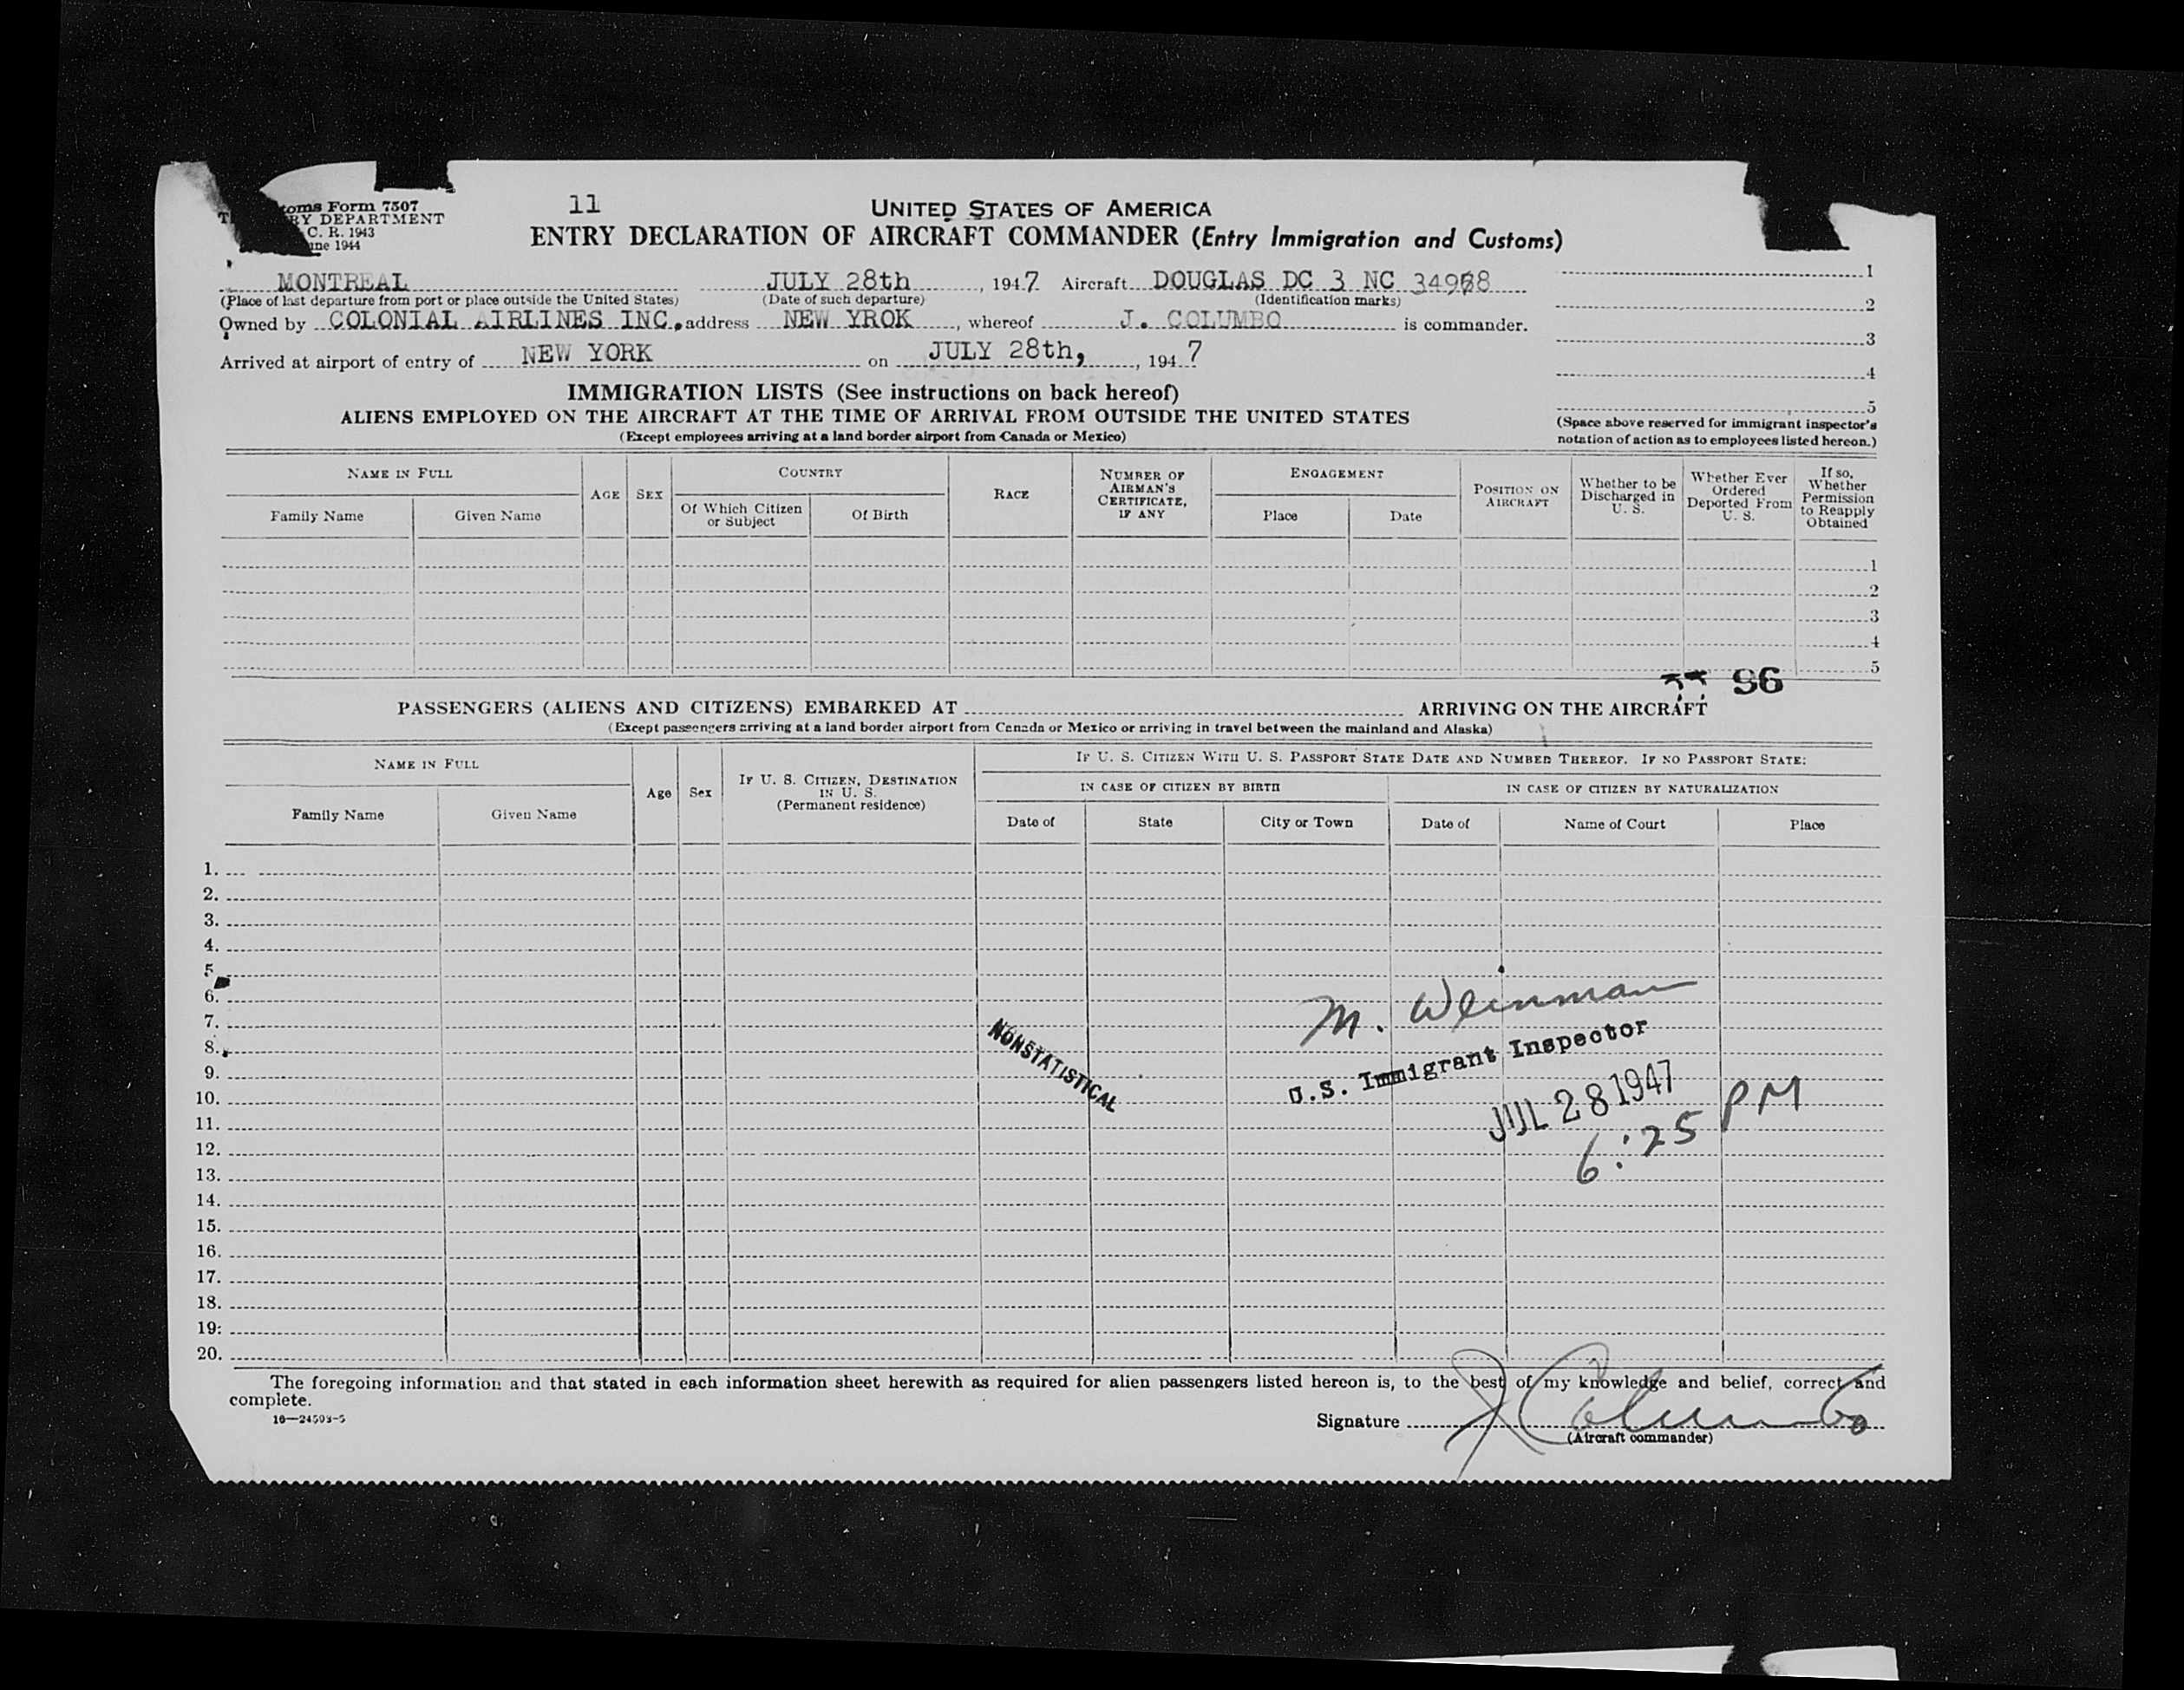 toms Form 7507
T RY DEPARTMENT
C. R. 1943
une 1944
11
UNITED STATES OF AMERICA
ENTRY DECLARATION OF AIRCRAFT COMMANDER (Entry Immigration and Customs)
MONTREAL JULY 28th, 1947 Aircraft DOUGLAS DC 3 NC
(Place of last departure from port or place outside the United States) (Date of such departure) (Identification marks)
Owned by COLONIAL AIRLINES INC. address NEW YROK, whereof J. COLUMBO is commander.
Arrived at airport of entry of NEW YORK on JULY 28th, , 1947
1
2
3
4
5
(Space above reserved for immigrant inspector's
notation of action as to employees listed hereon.)
IMMIGRATION LISTS (See instructions on back hereof)
ALIENS EMPLOYED ON THE AIRCRAFT AT THE TIME OF ARRIVAL FROM OUTSIDE THE UNITED STATES
(Except employees arriving at a land border airport from Canada or Mexico)
NAME IN FULL
Family Name Given Name
AGE SEX
COUNTRY
Of Which Citizen or Subject
Of Birth
RACE
NUMBER OF AIRMAN'S CERTIFICATE, IF ANY
ENGAGEMENT
Place Date
POSITION ON AIRCRAFT
Whether to be Discharged in U. S.
Whether Ever Ordered Deported From U. S.
If so, Whether Permission to Reapply Obtained
1
2
3
4
5
96
PASSENGERS (ALIENS AND CITIZENS) EMBARKED AT ARRIVING ON THE AIRCRAFT
(Except passengers arriving at a land border airport from Canada or Mexico or arriving in travel between the mainland and Alaska)
NAME IN FULL
Family Name Given Name
Age Sex
IF U. S. CITIZEN, DESTINATION
IN U. S.
(Permanent residence)
IF U. S. CITIZEN WITH U. S. PASSPORT STATE DATE AND NUMBER THEREOF. IF NO PASSPORT STATE:
IN CASE OF CITIZEN BY BIRTH IN CASE OF CITIZEN BY NATURALIZATION
Date of State City or Town Date of Name of Court Place
1.
2.
3.
4.
5.
6.
7.
8.
9.
10.
11.
12.
13.
14.
15.
16.
17.
18.
19.
20.
NONSTATISTICAL
M. Weinman
U.S. Immigrant Inspector
JUL 28 1947
6:25 PM
The foregoing information and that stated in each information sheet herewith as required for alien passengers listed hereon is, to the best of my knowledge and belief, correct and
complete.
16—24593-5
Signature J Columbo
(Aircraft commander)